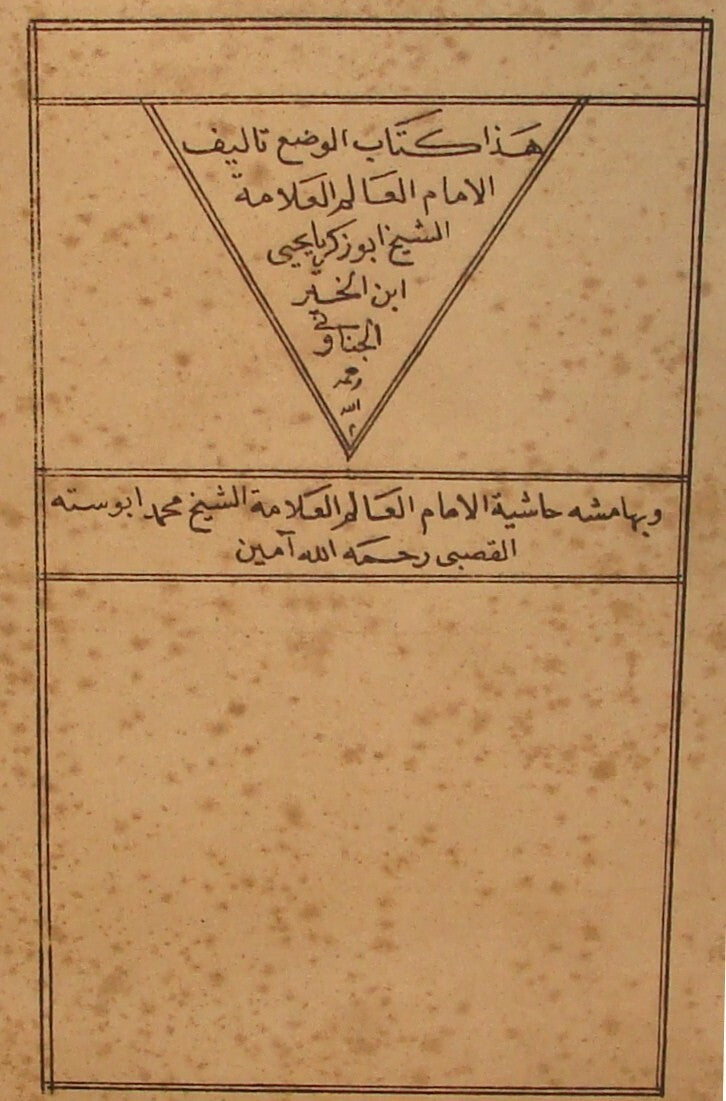 هذا كتاب الوضع تاليف
الامام العالم العلامة
الشيخ ابو زكريا يحيى
ابن الخير
الجناوني
رحمه
الله
وبهامشه حاشية الامام العالم العلامة الشيخ محمد ابوسته
القصبى رحمه الله آمين